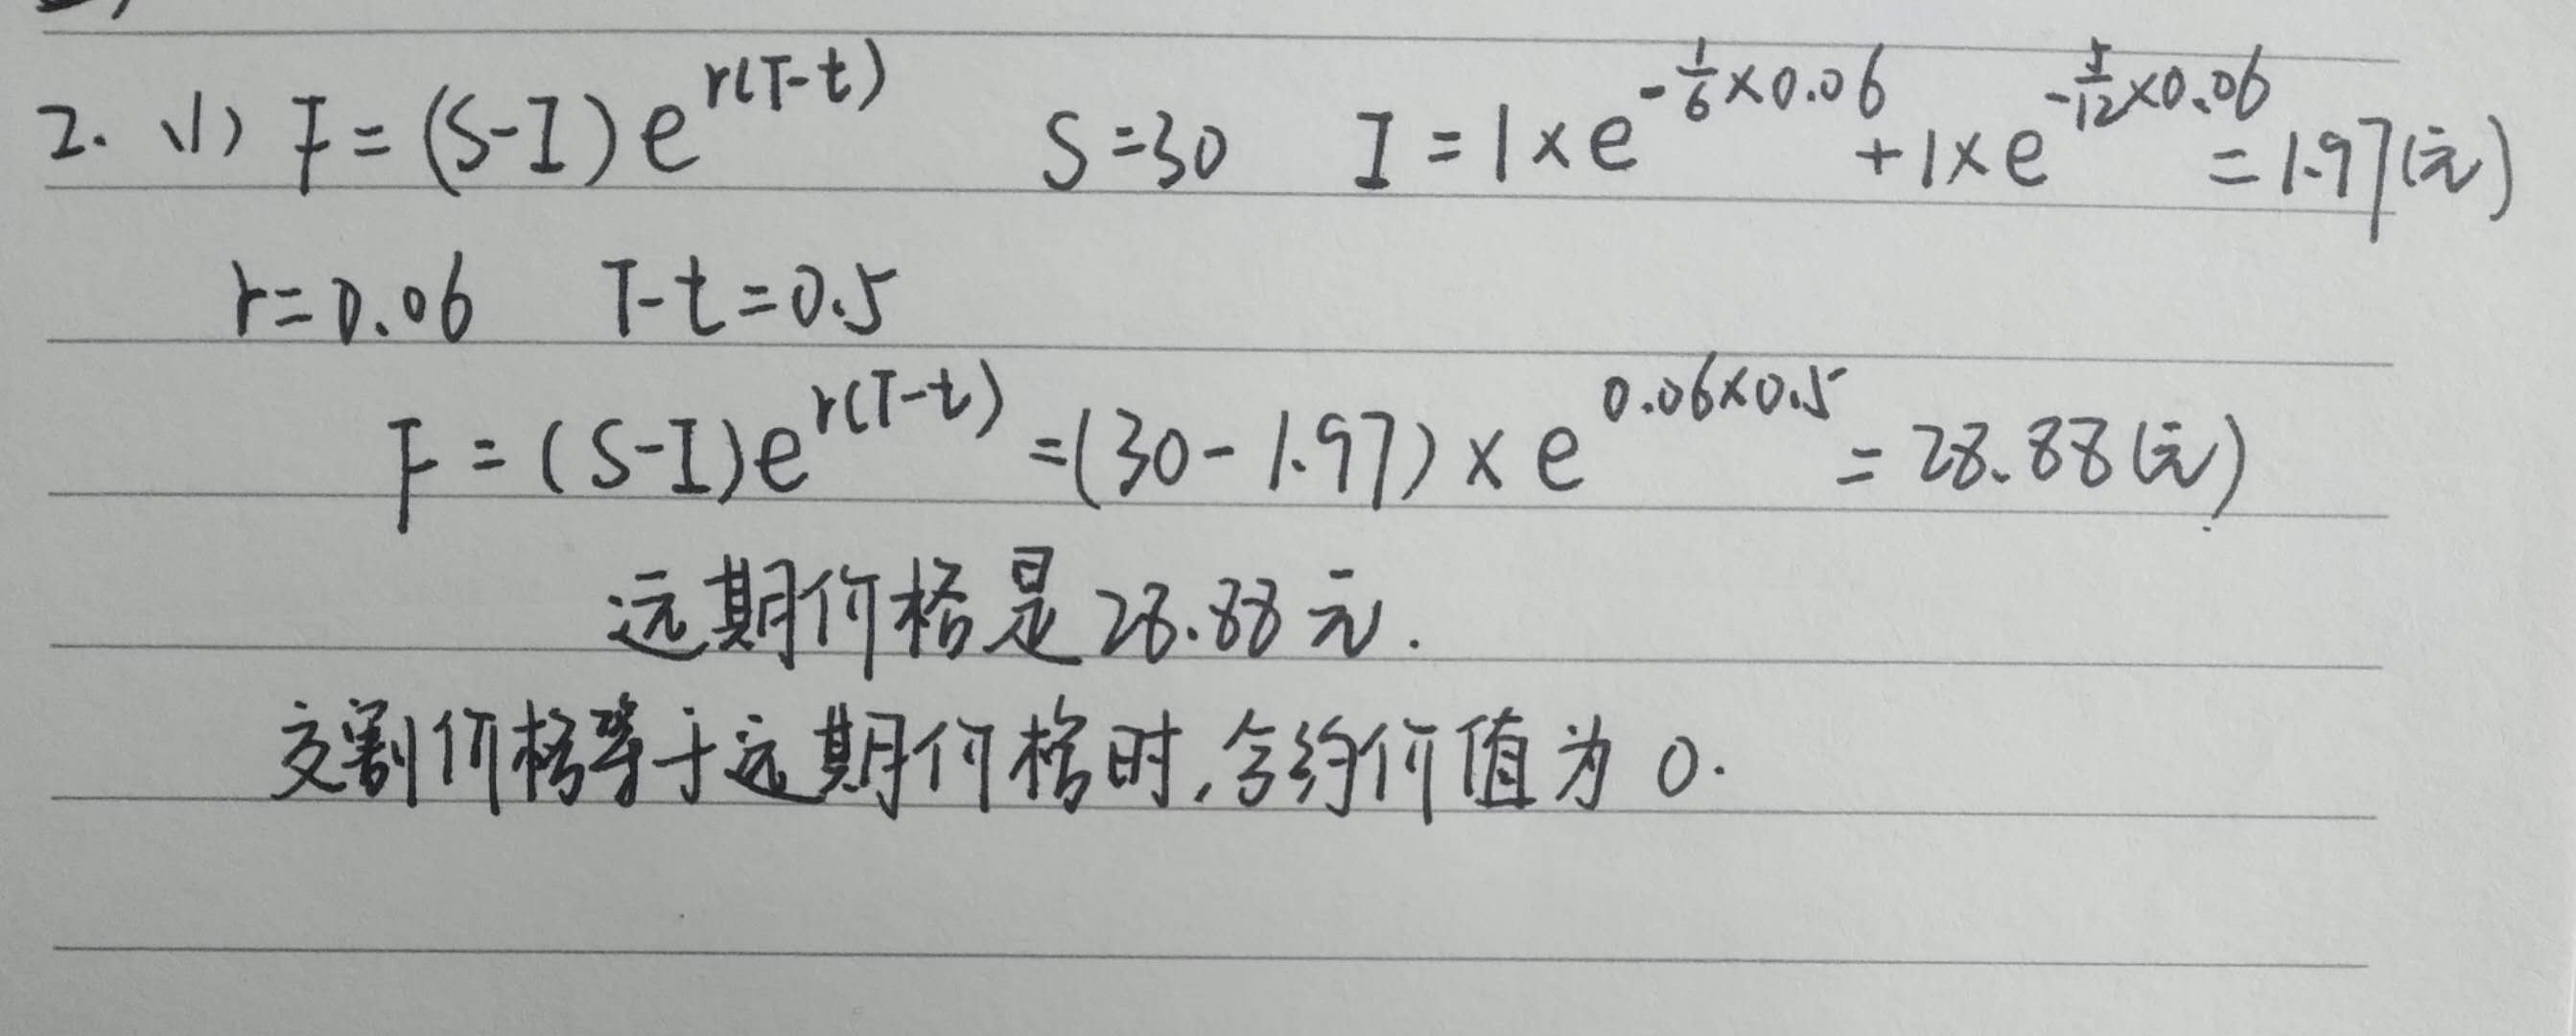 2. (1) F = (S-I) e^{r(T-t)} S=30 I = 1×e^{-\frac{1}{6}×0.06} + 1×e^{-\frac{5}{12}×0.06} = 1.97(元)
r=0.06 T-t=0.5
F = (S-I)e^{r(T-t)} =(30-1.97)×e^{0.06×0.5} = 28.88(元)
远期价格是28.88元.
交割价格等于远期价格时,合约价值为0.